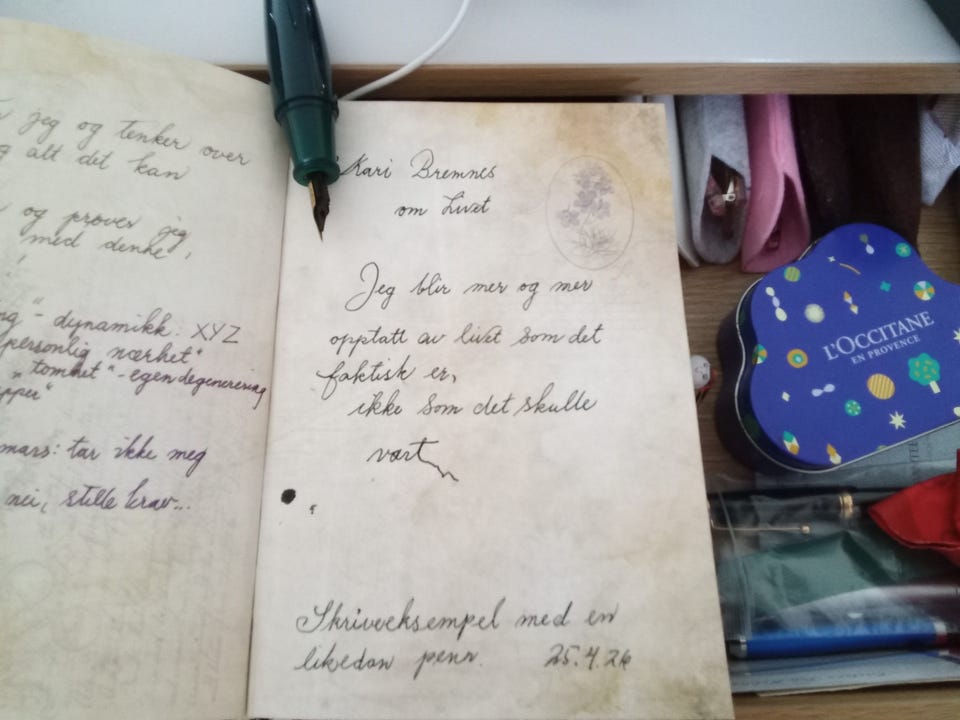 jeg og tenker over
alt det kan
og prøver jeg
med denne,
!
"- dynamikk: XYZ
personlig nærhet"
"tomhet"- egendegenerering
mars: tar ikke meg
nei, stille krav...
Kari Bremnes
om Livet
Jeg blir mer og mer
opptatt av livet som det
faktisk er,
ikke som det skulle
vært
Skriveeksempel med en
likedan penn. 25.4.26
L'OCCITANE
EN PROVENCE